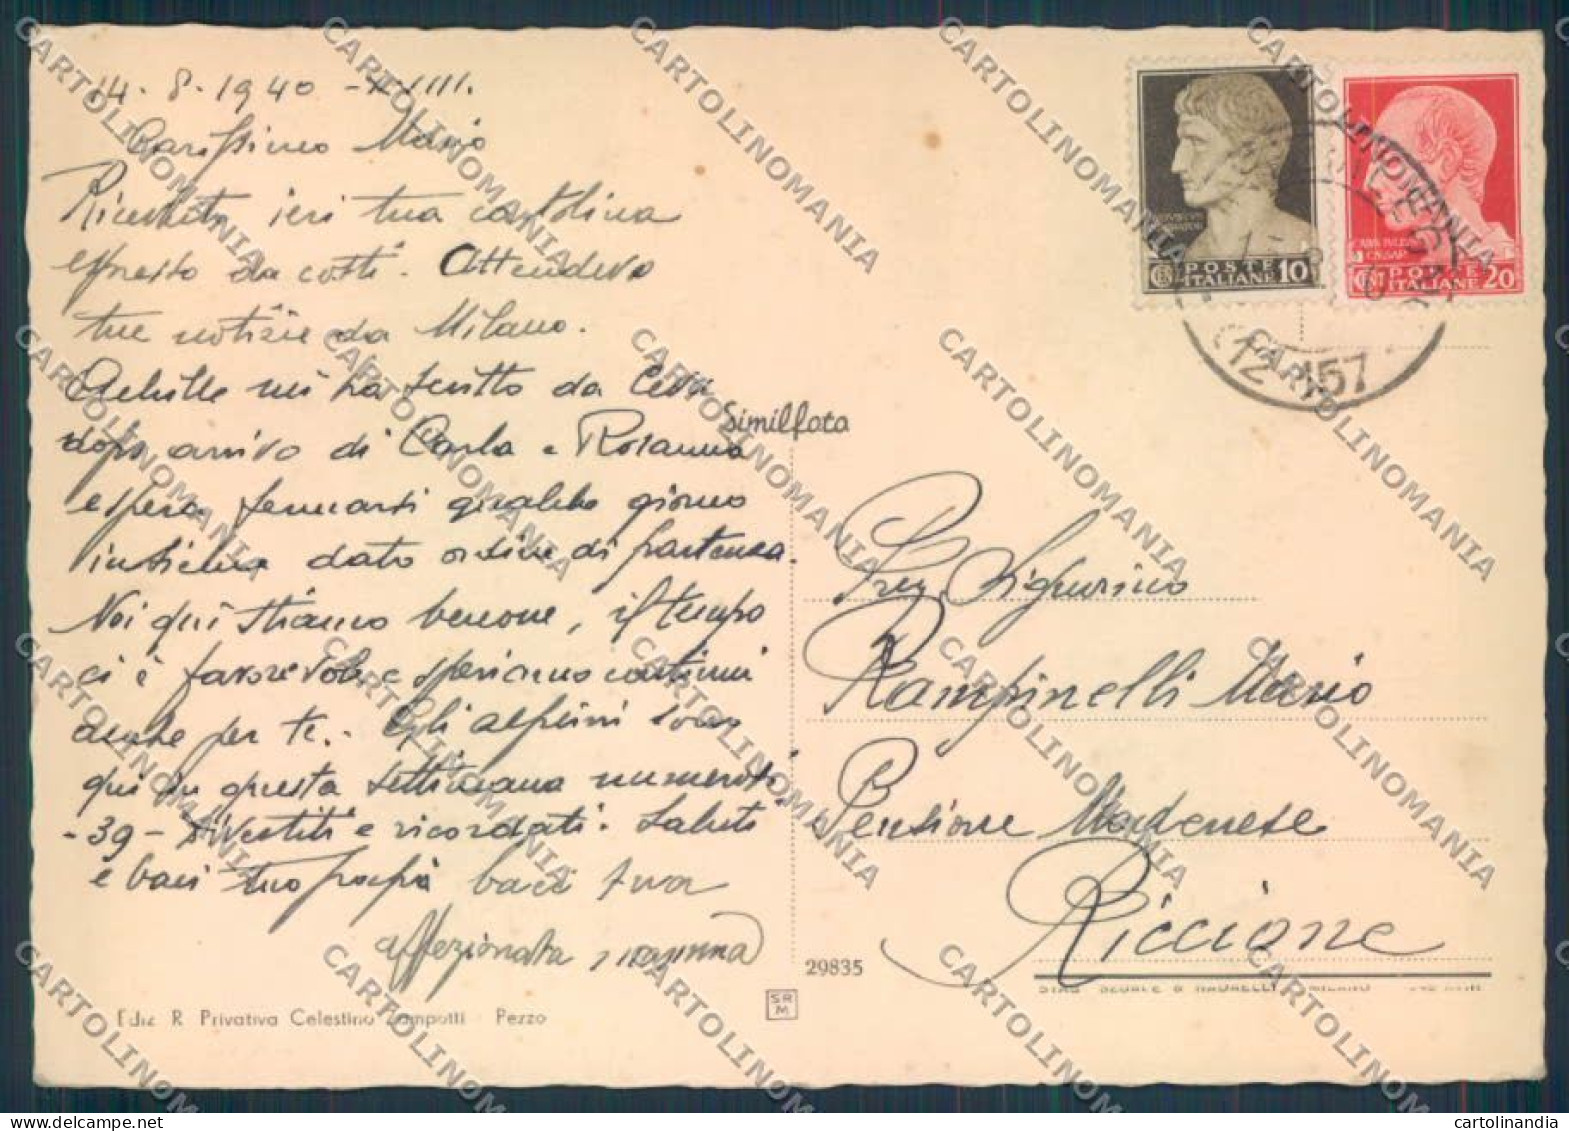 14. 8. 1940 - XVIII.
Carissimo Mario
Ricevuta ieri tua cartolina
espresso da costì. Attendevo
tue notizie da Milano.
Achille mi ha scritto da
dopo arrivo di Carla e Rosanna
espera fermarsi qualche giorno
dato ordine di partenza.
Noi qui stiamo benone, il tempo
ci è favorevole e speriamo continui
anche per te. Gli alpini sono
qui in questa settimana numerosi
-39- Divertiti e ricordati. Saluti
e baci tuo papà baci tua
affezionata mamma
Ediz R. Privativa Celestino Zampatti - Pezzo
Similfoto
29835
SR
M
POSTE
ITALIANE 10
POSTE
ITALIANE 20
12 457
Preg. Signorino
Rampinelli Mario
Pensione Modenese
Riccione
CARTOLINOMANIA
cartolinandia